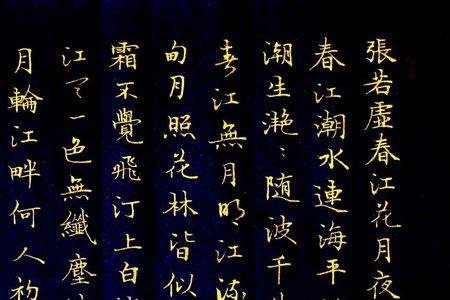 張若虛春江花月夜
春江潮水連海平
潮生灔〻随波千
春江無月明江流
甸月照花林皆似
霜不覺飛汀上白
江天一色無纖塵
月輪江畔何人初